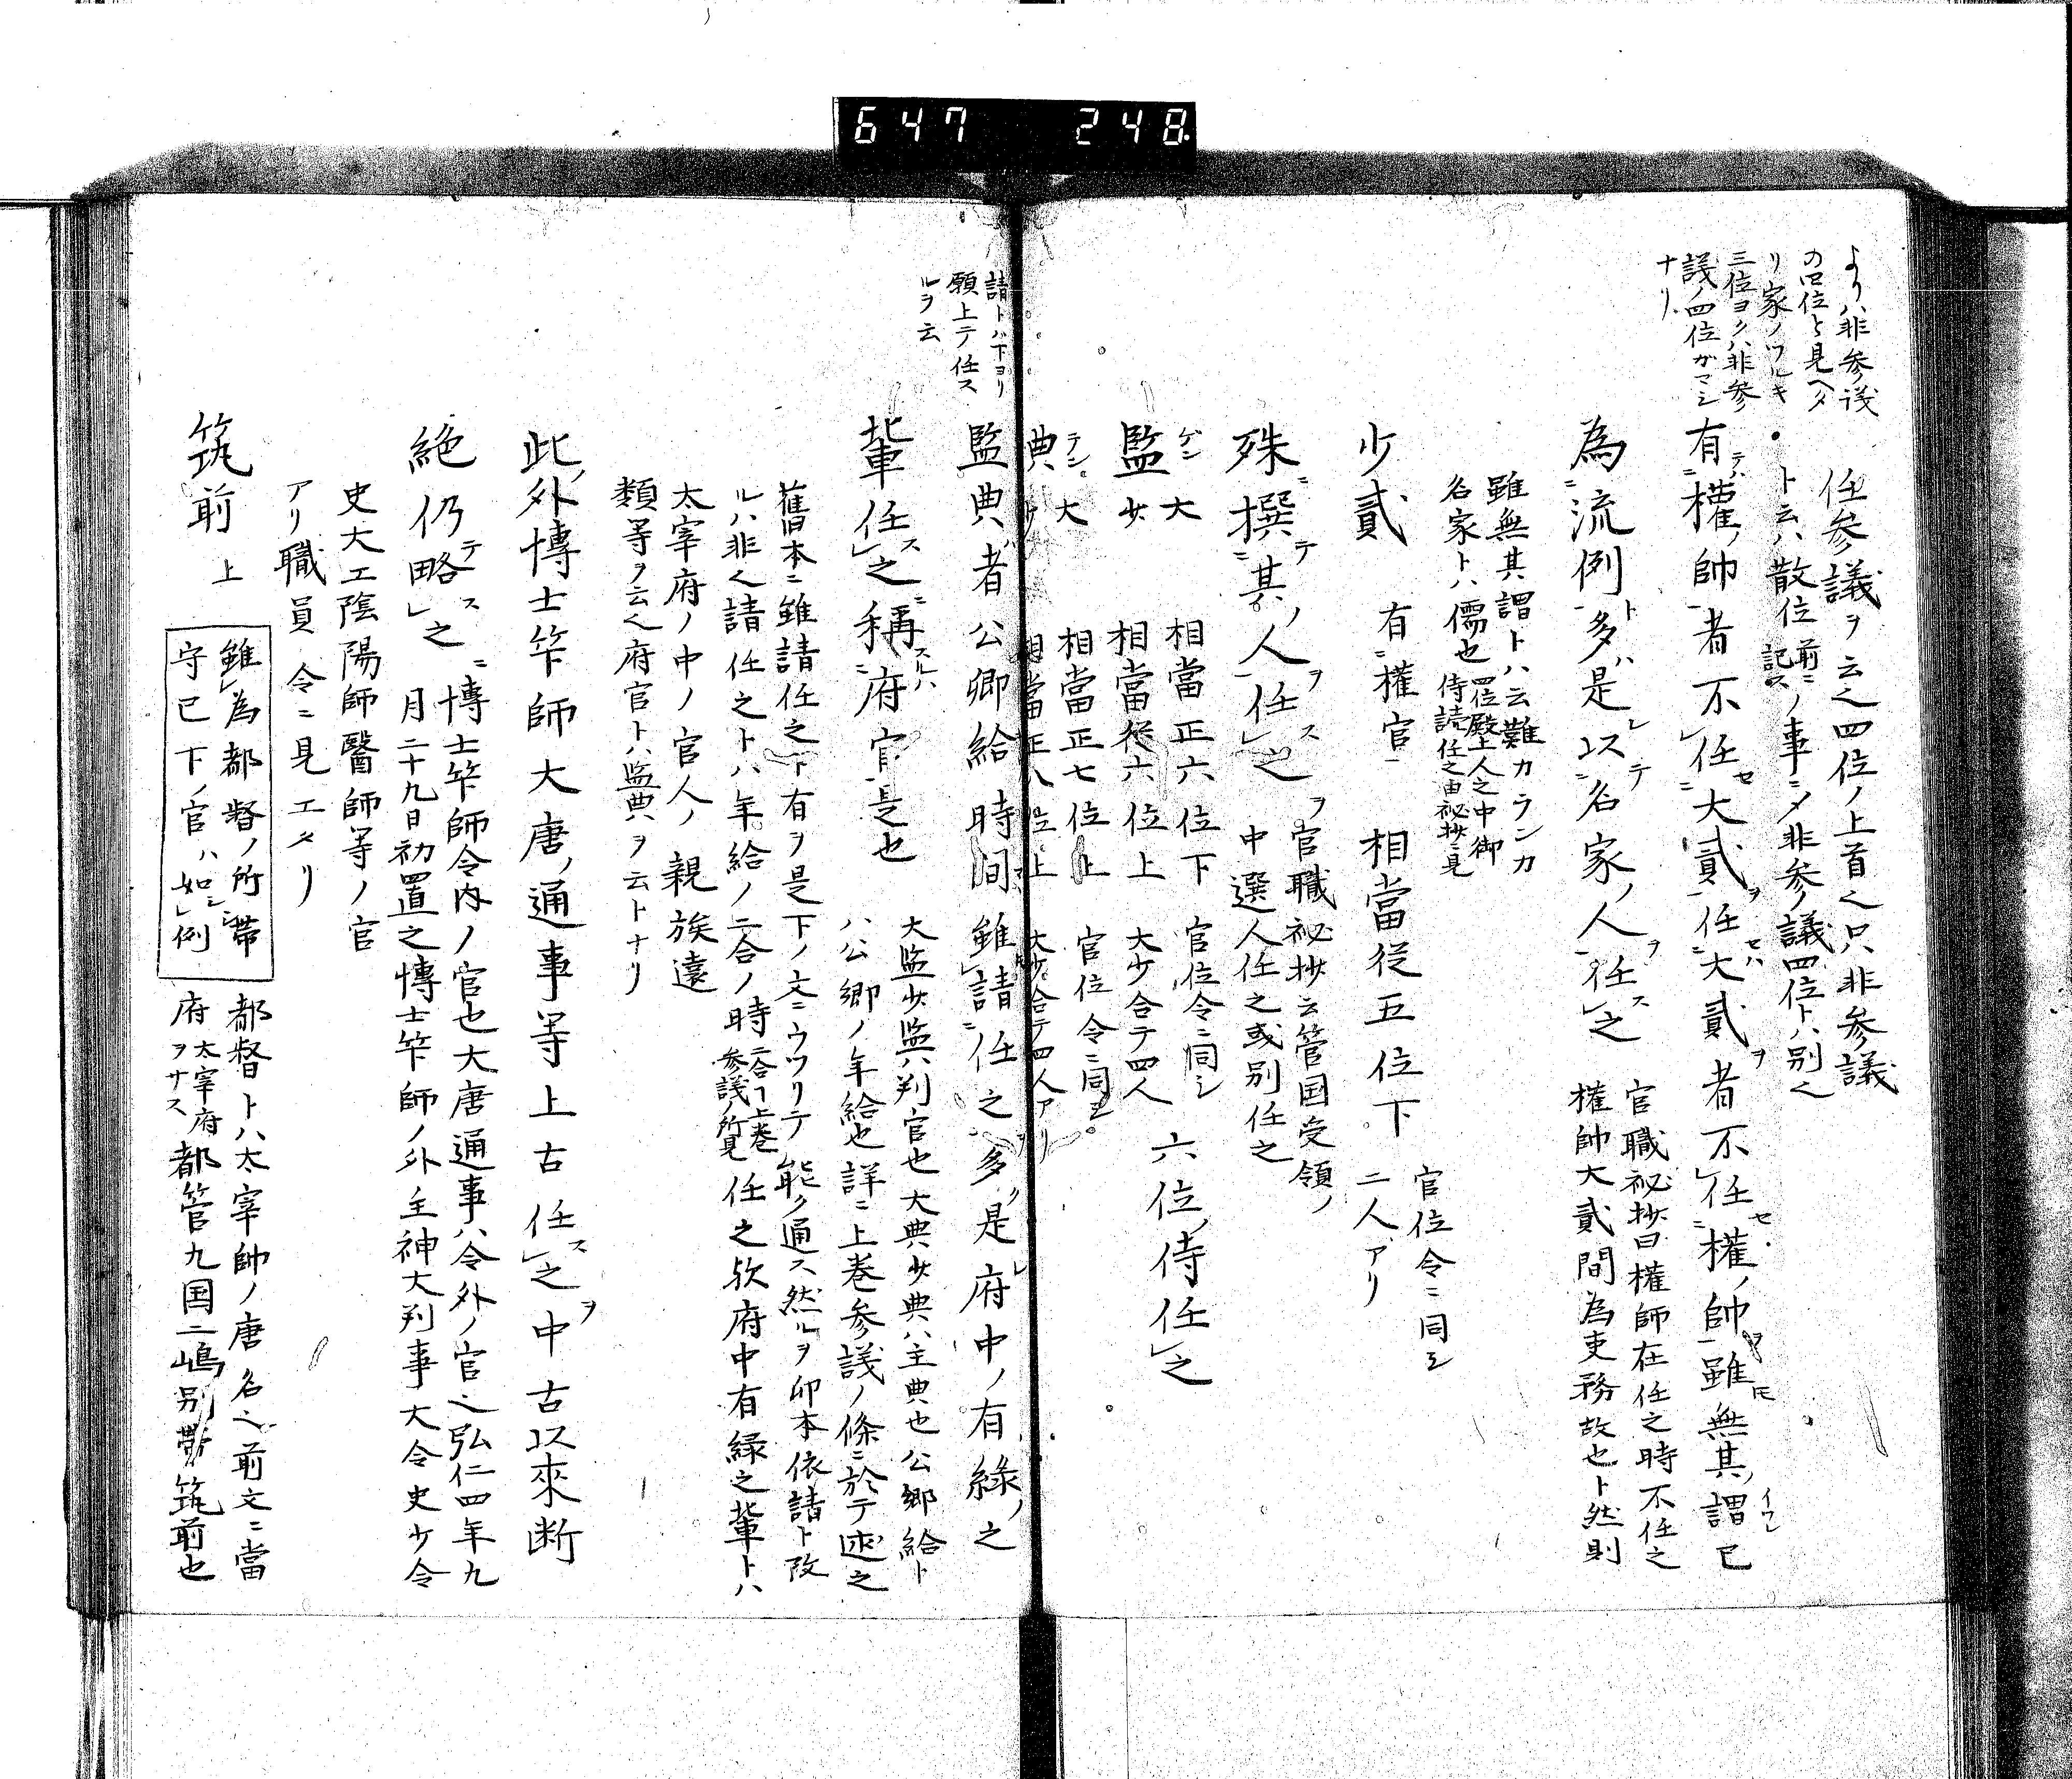 647 248
よりハ非参議
の四位と見ヘタ
リ家ノワルキ
三位ヨクハ非参
議ノ四位ガマシ
ナリ
任参議ヲ云之四位ノ上首之只非参議
ト云ハ散位前ニ記スノ事ニメ非参ノ議四位トハ別之
有権ノ帥者不任大貳任大貳者不任権ノ帥雖無其謂已
為流例多是以名家ノ人任之
官職秘抄曰権師在任之時不任之
権帥大貳間為吏務故也ト然則
雖無其謂トハ云難カランカ
名家トハ儒也
四位殿上人之中御
侍読任之由秘抄ニ見
少貳 有権官 相當従五位下
官位令ニ同シ
二人アリ
殊撰其ノ人任之
官職秘抄云管国受領ノ
中選人任之或別任之
監
大 相當正六位下 官位令ニ同シ
少 相當従六位上 大少合テ四人
六位ノ侍任之
典
大 相當正七位上 官位令ニ同シ
少 相當正八位上 大少合テ四人アリ
請トハ下ヨリ
願上テ任ス
ルヲ云
監典者公卿給時間雖請任之多是府中ノ有縁ノ之
輩任之稱府官是也
大監少監ハ判官也大典少典ハ主典也公卿給ト
ハ公卿ノ年給也詳ニ上巻参議ノ條ニ於テ述之
舊本ニ雖請任之下有ヲ是下ノ文ニウツリテ能ク通ス然ルヲ卯本依請ト改
ルハ非之請任之トハ年給ノ二合ノ時
二合フ上巻
参議ノ所見
任之欤府中有縁之輩トハ
太宰府ノ中ノ官人ノ親族遠
類等ヲ云之府官トハ監典ヲ云トナリ
此外博士笇師大唐ノ通事等上古任之中古以來断
絶仍略之
博士笇師令内ノ官也大唐通事ハ令外ノ官之弘仁四年九
月二十九日初置之博士笇師ノ外主神大判事大令史少令
史大工陰陽師醫師等ノ官
アリ職員令ニ見エタリ
筑前 上
雖為都督ノ所帯
守已下ノ官ハ如例
都督トハ太宰帥ノ唐名之前文ニ當
府太宰府ヲサス都管九国二嶋別帯筑前也